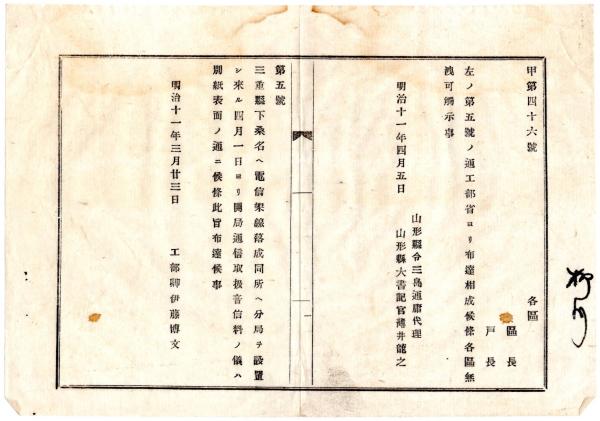 甲第四十六號
各區
區長
戸長
左ノ第五號ノ通工部省ヨリ布達相成候條各區無
洩可觸示事
明治十一年四月五日
山形縣令三島通庸代理
山形縣大書記官薄井龍之
第五號
三重縣下桑名ヘ電信架線落成同所ヘ分局ヲ設置
シ來ル四月一日ヨリ開局通信取扱音信料ノ儀ハ
別紙表面ノ通ニ候條此旨布達候事
明治十一年三月廿三日
工部卿伊藤博文